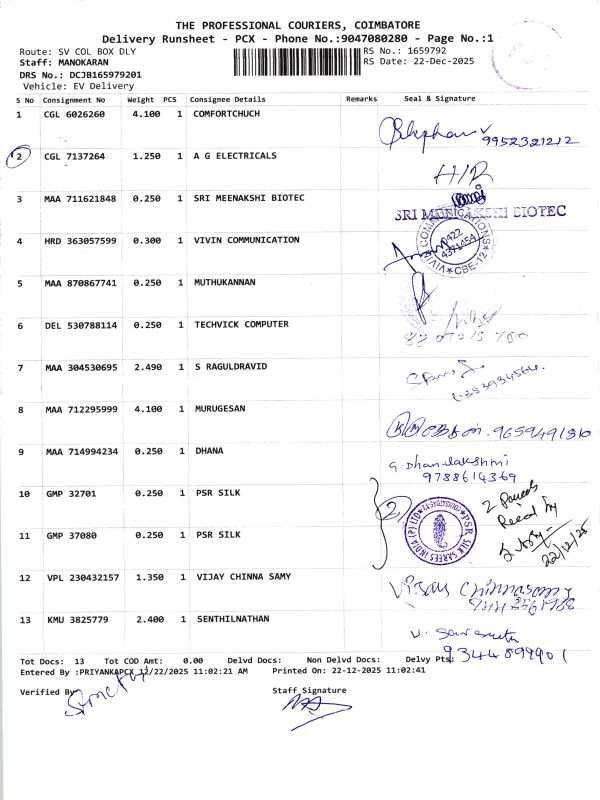 THE PROFESSIONAL COURIERS, COIMBATORE
Delivery Runsheet - PCX - Phone No.:9047080280 - Page No.:1
Route: SV COL BOX DLY
RS No.: 1659792
Staff: MANOKARAN
RS Date: 22-Dec-2025
DRS No.: DCJB165979201
Vehicle: EV Delivery
S No Consignment No Weight PCS Consignee Details Remarks Seal & Signature
1 CGL 6026260 4.100 1 COMFORTCHUCH
9952321212
2 CGL 7137264 1.250 1 A G ELECTRICALS
H/R
3 MAA 711621848 0.250 1 SRI MEENAKSHI BIOTEC
SRI MEENAKSHI BIOTEC
4 HRD 363057599 0.300 1 VIVIN COMMUNICATION
VIVIN COMMUNICATIONS
0422
4391454
CBE-12
5 MAA 870867741 0.250 1 MUTHUKANNAN
6 DEL 530788114 0.250 1 TECHVICK COMPUTER
7 MAA 304530695 2.490 1 S RAGULDRAVID
8 MAA 712295999 4.100 1 MURUGESAN
9659491836
9 MAA 714994234 0.250 1 DHANA
G. Dhanalakshmi
9788614369
10 GMP 32701 0.250 1 PSR SILK
2
PSR SILK SAREES INDIA (P) LTD
2 Parcels
Recd by
22/12/25
11 GMP 37080 0.250 1 PSR SILK
12 VPL 230432157 1.350 1 VIJAY CHINNA SAMY
Vijay Chinnasamy
13 KMU 3825779 2.400 1 SENTHILNATHAN
9344899901
Tot Docs: 13 Tot COD Amt: 0.00 Delvd Docs: Non Delvd Docs: Delvy Pts:
Entered By :PRIYANKAPCX 12/22/2025 11:02:21 AM Printed On: 22-12-2025 11:02:41
Verified By
Staff Signature